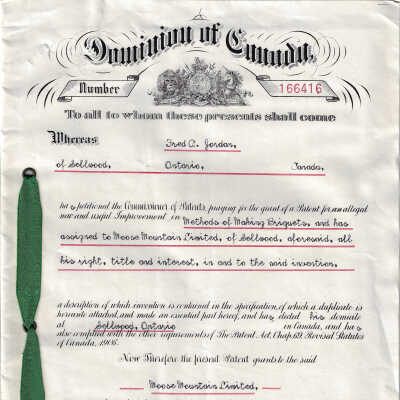 Dominion of Canada.
Number 166416
To all to whom these presents shall come
Whereas Fred A. Jordan,
of Sellwood, Ontario, Canada,
has petitioned the Commissioner of Patents, praying for the grant of a Patent for an alleged
new and useful Improvement in Methods of Making Briquets, and has
assigned to Moose Mountain Limited, of Sellwood, aforesaid, all
his right, title and interest, in and to the said invention.
a description of which invention is contained in the specification, of which a duplicate is
hereunto attached and made an essential part hereof, and has elected his domicile
at Sellwood, Ontario in Canada, and has
also complied with the other requirements of The Patent Act, Chap. 69, Revised Statutes
of Canada, 1906.
Now Therefore the present Patent grants to the said
Moose Mountain Limited,